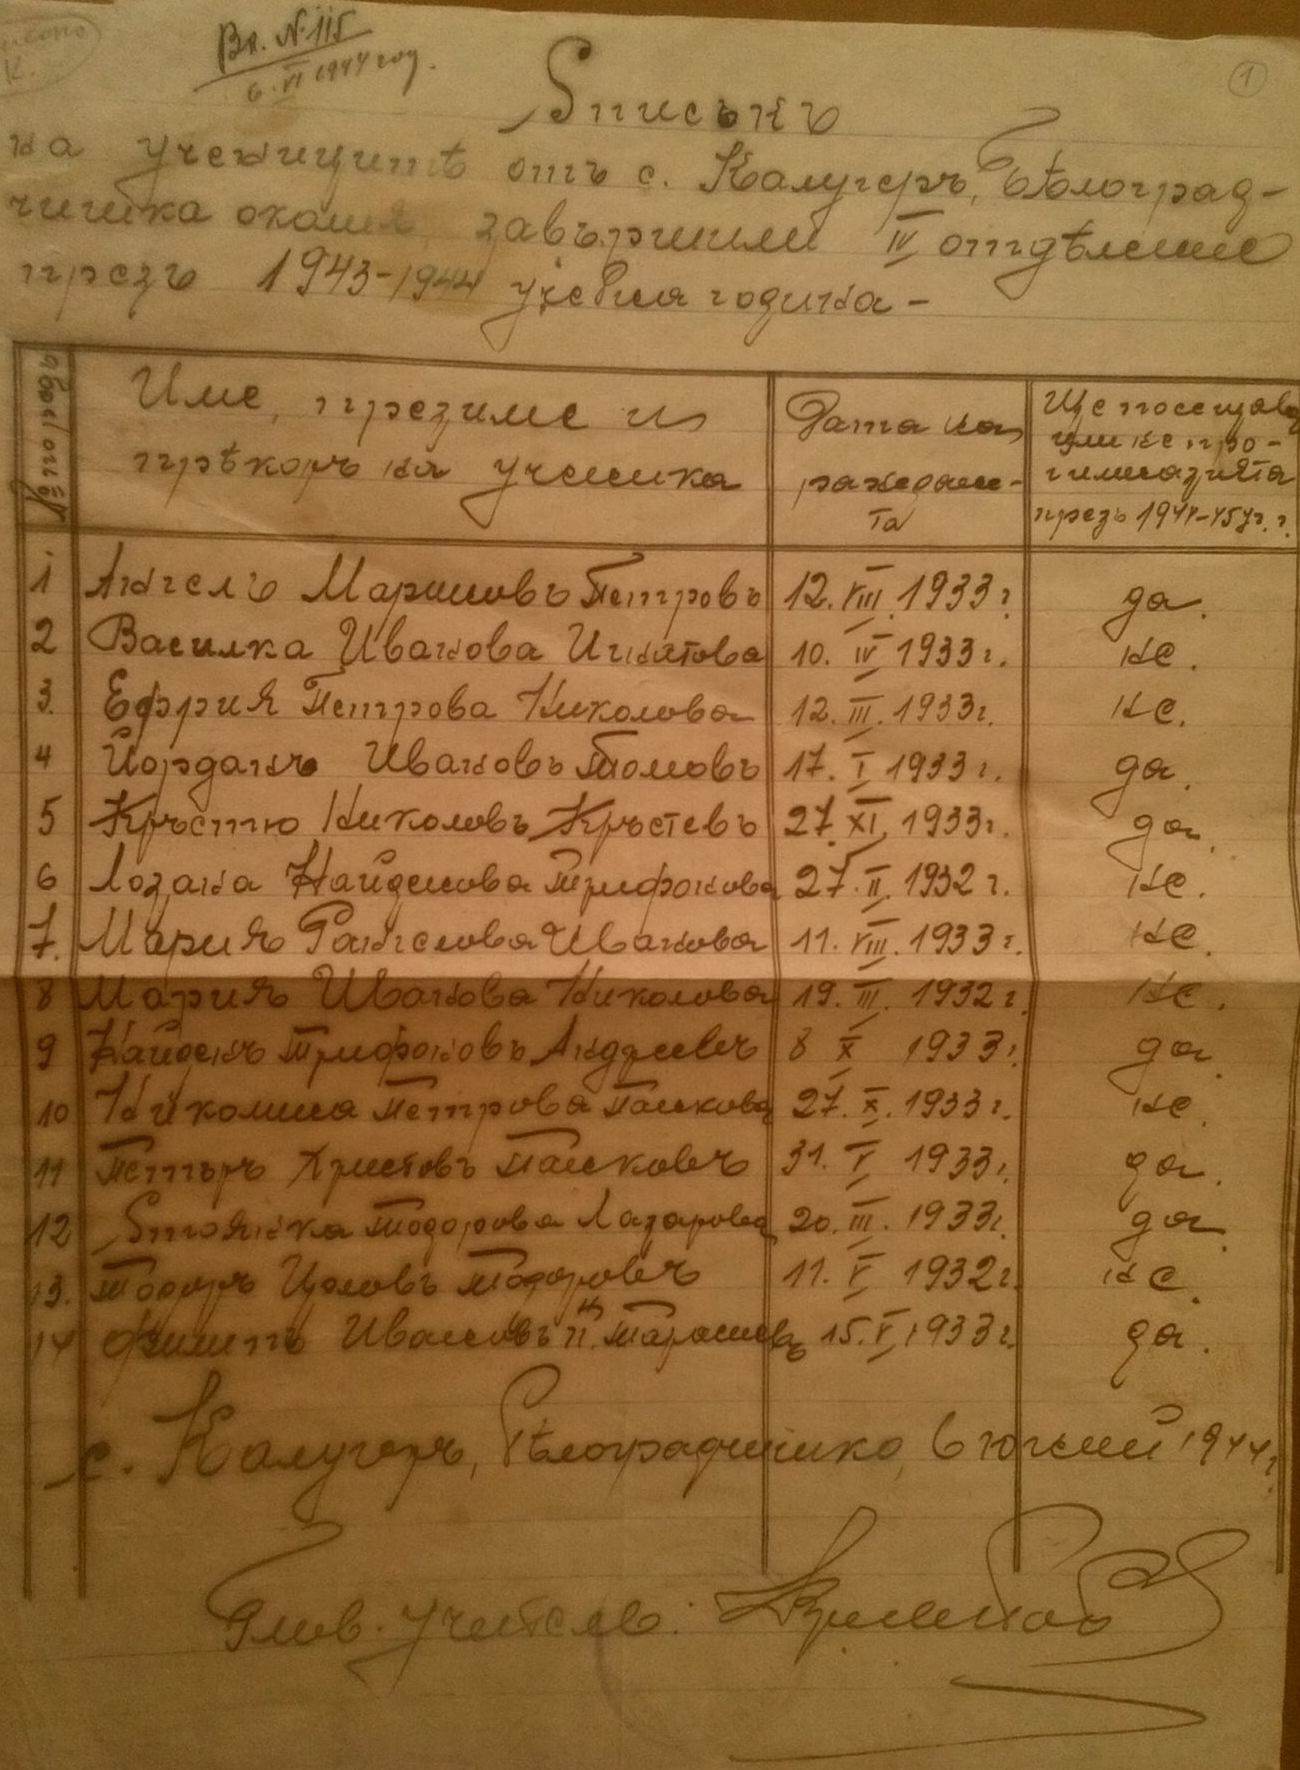 Вх. № 115
6. VI 1944 год.
1
Списъкъ
на ученицитѣ отъ с. Калугеръ, Бѣлоград-
чишка околия, завършили IV отдѣление
презъ 1943-1944 учебна година -
Име, презиме и
прѣкоръ на ученика
Дата на
раждане-
та
Ще посещава
или не про-
гимназията
презъ 1944-45 уч. г.
1 Ангелъ Мариновъ Петровъ 12. VIII. 1933 г. да.
2 Василка Иванова Игнатова 10. IV 1933 г. не.
3. Ефрия Петрова Николова 12. III. 1933 г. не.
4 Йорданъ Ивановъ Томовъ 17. I 1933 г. да.
5 Кръстю Николовъ Кръстевъ 27. XI. 1933 г. да.
6 Лозана Найденова Трифонова 27. II. 1932 г. не.
7. Мария Рангелова Иванова 11. VIII. 1933 г. не.
8 Мария Иванова Николова 19. III. 1932 г. не.
9 Найденъ Трифоновъ Андреевъ 8 X 1933 г. да.
10 Николина Петрова Панкова 27. X. 1933 г. не.
11 Петъръ Христовъ Панковъ 31. V 1933 г. да.
12 Стоянка Тодорова Лазарова 20. III. 1933 г. да.
13. Тодоръ Цоловъ Тодоровъ 11. V 1932 г. не.
14 Филипъ Ивановъ 15. V. 1933 г. да.
с. Калугеръ, Бѣлоградчишко, 6 юний 1944 г.
Глав. учитель: